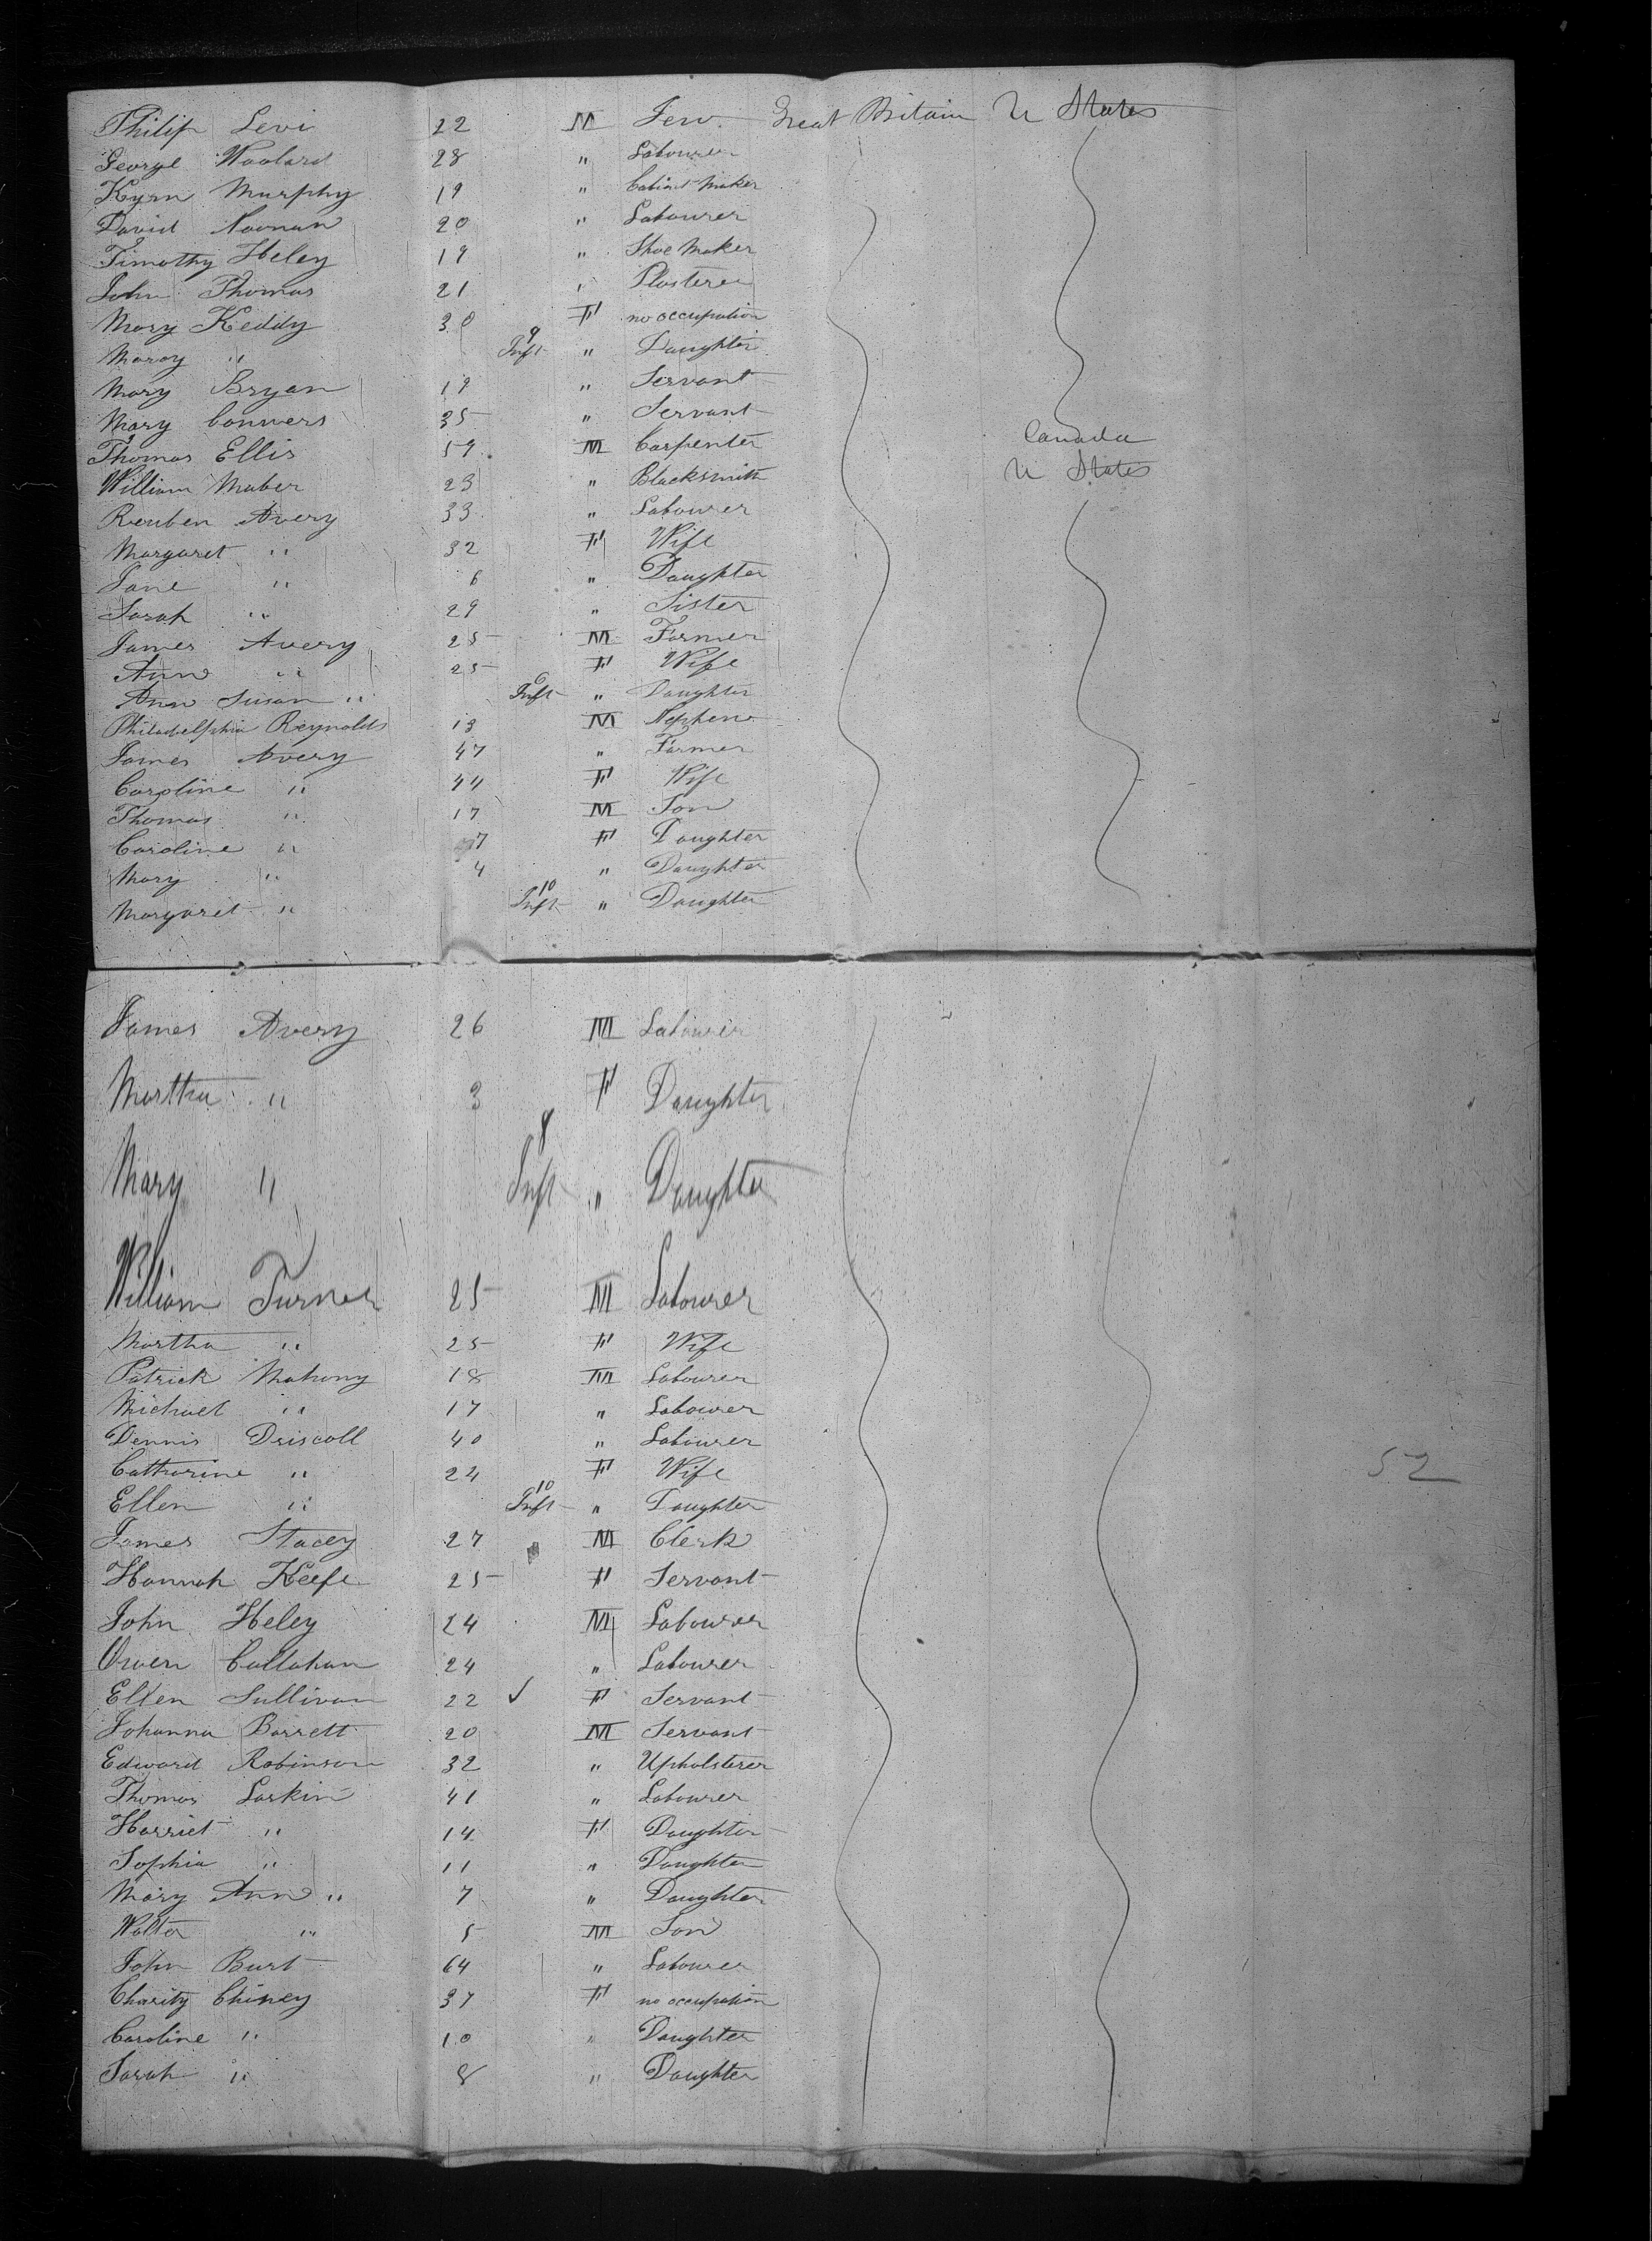 Philip Levi 22 M Jew. Great Britain U States
George Woolard 28 " Labourer
Kyrn Murphy 19 " Cabinet Maker
David Noonan 20 " Labourer
Timothy Heley 19 " Shoe Maker
John Thomas 21 " Plasterer
Mary Keddy 30 F no occupation
Marey " 9 Inft " Daughter
Mary Bryan 19 " Servant
Mary Connners 35 " Servant
Thomas Ellis 59 M Carpenter Canada
William Maber 23 " Blacksmith U States
Reuben Avery 33 " Labourer
Margaret " 32 F Wife
Jane " 6 " Daughter
Sarah " 29 " Sister
James Avery 25 M Farmer
Ann " 25 F Wife
Ann Susan " 6 Inft " Daughter
Philadelphia Reynolds 13 M Nephew
James Avery 47 " Farmer
Caroline " 44 F Wife
Thomas " 17 M Son
Caroline " 7 F Daughter
Mary " 4 " Daughter
Margaret " 10 Inft " Daughter
James Avery 26 M Labourer
Martha " 3 F Daughter
Mary " 8 Inft " Daughter
William Turner 25 M Labourer
Martha " 25 F Wife
Patrick Mahony 18 M Labourer
Michael " 17 " Labourer
Dennis Driscoll 40 " Labourer
Catharine " 24 F Wife 52
Ellen " 10 Inft " Daughter
James Stacey 27 M Clerk
Hannah Keefe 25 F Servant
John Heley 24 M Labourer
Owen Callahan 24 " Labourer
Ellen Sullivan 22 ✓ F Servant
Johanna Barrett 20 M Servant
Edward Robinson 32 " Upholsterer
Thomas Larkin 41 " Labourer
Harriet " 14 F Daughter
Sophia " 11 " Daughter
Mary Ann " 7 " Daughter
Walter " 5 M Son
John Burt 64 " Labourer
Charity Chiney 37 F no occupation
Caroline " 10 " Daughter
Sarah " 8 " Daughter